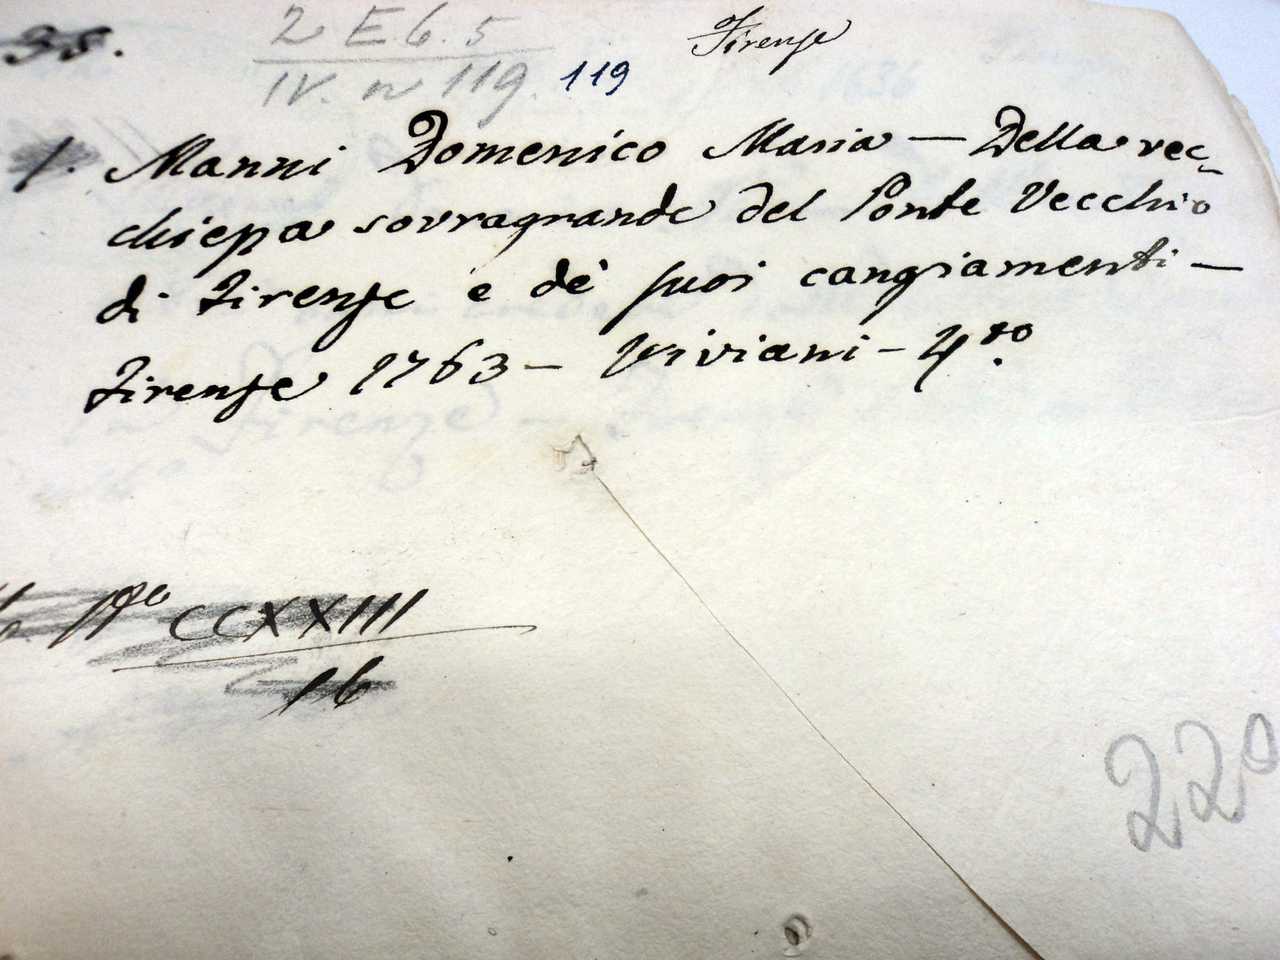 38.
2 E 6. 5
Firenze
IV. n 119.
119
1. Manni Domenico Maria — Della vec-
chiepa sovragrande del Ponte Vecchio
di Firenze e de' suoi cangiamenti —
Firenze 1763 — Viviani — 4to.
CCXXIII
16
220